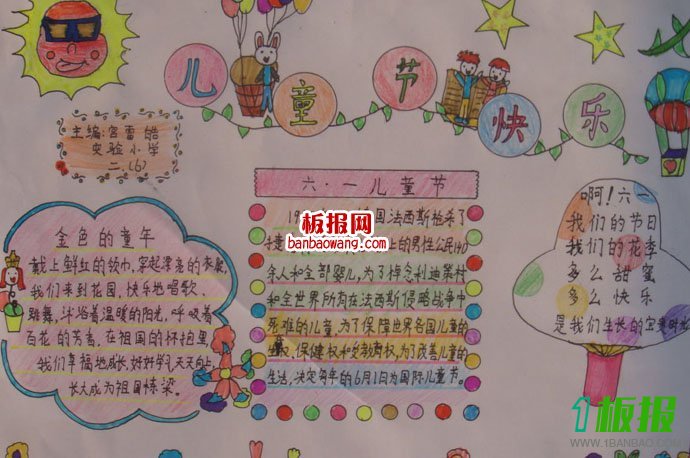 儿童节快乐
主编:宫雷皓
实验小学
二.(6)
六·一儿童节
国法西斯枪杀了
上的男性公民140
余人和全部婴儿,为了悼念利迪策村
和全世界所有在法西斯侵略战争中
死难的儿童,为了保障世界各国儿童的
权,保健权和受教育权,为了改善儿童的
生活,决定每年的6月1日为国际儿童节。
金色的童年
戴上鲜红的领巾,穿起漂亮的衣裳,
我们来到花园,快乐地唱歌
跳舞,斗浴着温暖的阳光,呼吸着
百花的芳香,在祖国的怀抱里,
我们幸福地成长,好好学习天天向上,
长大成为祖国栋梁。
啊!六一
我们的节日
我们的花季
多么甜蜜
多么快乐
是我们生长的宝贵时光
板报网
banbaowang.com
1板报
WWW.1BANBAO.COM